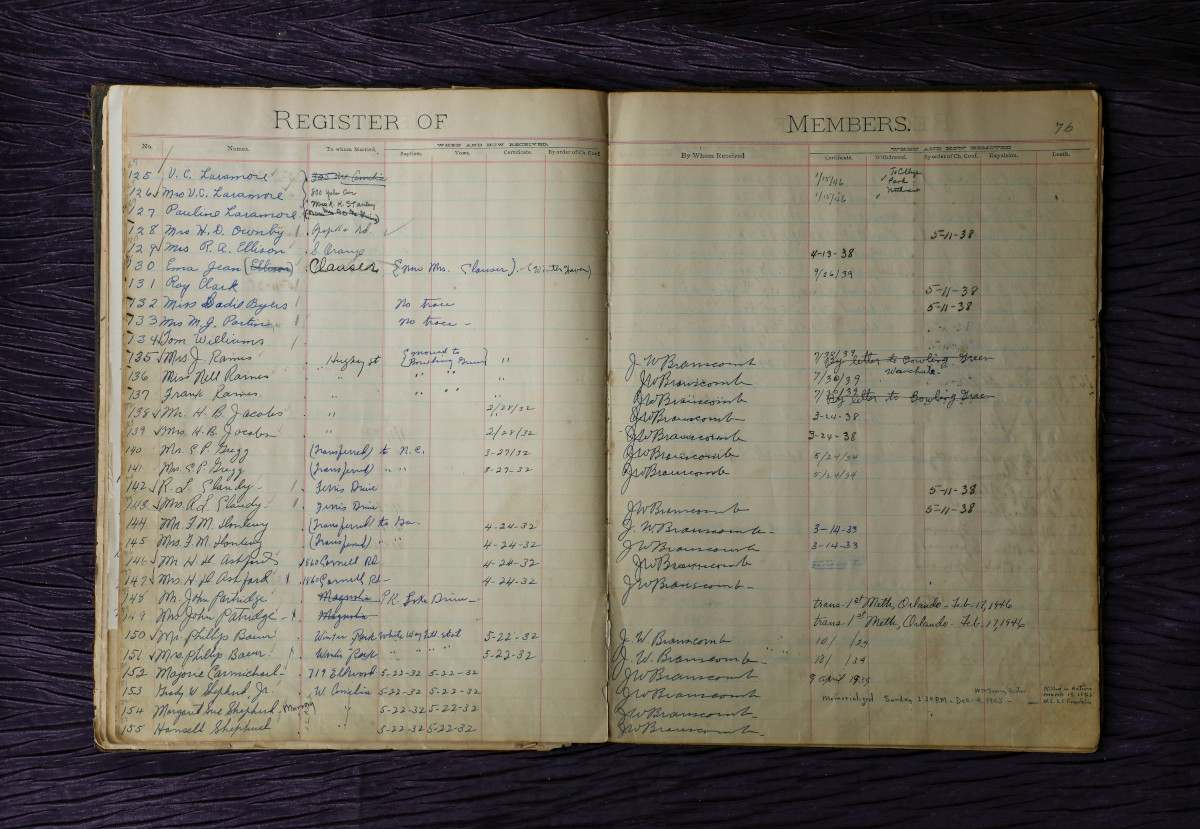 REGISTER OF MEMBERS. 76
No. Names. To whom Married. WHEN AND HOW RECEIVED. Baptism. Vows. Certificate. By order of Ch. Conf. By Whom Received WHEN AND HOW REMOVED Certificate. Withdrawal. By order of Ch. Conf. Expulsion. Death.
125 V. C. Laramore W. 1/15/46 To College
126 Mrs V.C. Laramore 1/15/46 Park
127 Pauline Laramore Mrs R. K. Stanley
128 Mrs H. D. Ownby Apopka Rd. 5-11-38
129 Mrs R. A. Ellison S. Orange 4-13-38
130 Ema Jean (Ellison) Clauser (now Mrs. Clauser) (Winter Haven) 9/26/39
131 Roy Clark 5-11-38
132 Miss Sadie Byers No trace 5-11-38
133 Mrs M. J. No trace -
134 Tom Williams
135 Mrs J. Raines Hughey st (moved to Bowling Green) " J. W Branscomb 7/30/39 By letter to Bowling Green
136 Miss Nell Raines " " " JW Branscomb 7/30/39
137 Frank Raines " " " JW Branscomb 7/30/39 By letter to Bowling Green
138 Mr. H. B. Jacobs " 2/28/32 JW Branscomb 3-24-38
139 Mrs. H. B. Jacobs " 2/28/32 JW Branscomb 3-24-38
140 Mr. E. P. Gregg (Transferred) to N.C. 3-27/32 JW Branscomb 5/24/34
141 Mrs. E. P. Gregg (Transferred) " " 3-27-32 JW Branscomb 5/24/34
142 R. L. Ferris Drive 5-11-38
143 Mrs. R L Ferris Drive JW Branscomb 5-11-38
144 Mr. F. M. (Transferred to Ga. 4-24-32 J. W Branscomb - 3-14-33
145 Mrs. F. M. (Transferred) " " 4-24-32 JW Branscomb 3-14-33
146 Mr H H Ashford 1860 Cornell Rd. 4-24-32 JW Branscomb
147 Mrs H H Ashford 1860 Cornell Rd - 4-24-32 JW Branscomb -
148 Mr. John Partridge Magnolia P.R. Lake Drive - trans. 1st Meth, Orlando - Feb. 17, 1946
149 Mrs John Patridge Magnolia trans. 1st Meth, Orlando - Feb. 17, 1946
150 Mr Phillip Winter Park 5-22-32 J. W. Branscomb 10/ /39
151 Mrs Phillip Winter Park " " " " 5-22-32 J. W. Branscomb - 10/ /39
152 Majorie Carmichael - 719 Elkwood 5-22-32 5-22-32 JW Branscomb 9 April 1935
153 Grady W. Shepherd, Jr. W. Amelia 5-22-32 5-22-32 JW Branscomb - Memorialized Sunday Killed in Action March
154 Margaret Sue Shepherd " 5-22-32 5-22-32 JW Branscomb -
155 Hansell Shepherd 5-22-32 5-22-32 JW Branscomb -